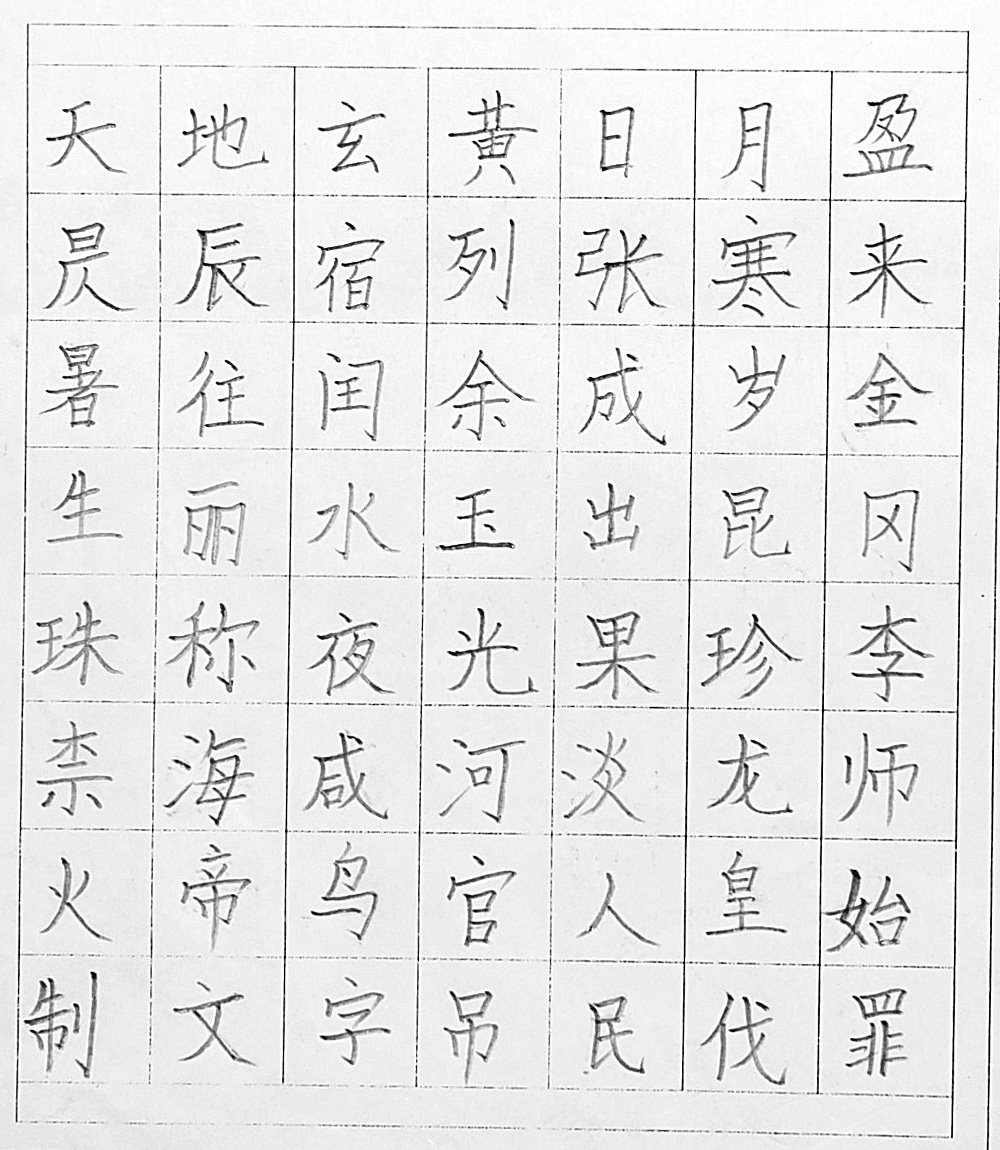 天地玄黄日月盈
昃辰宿列张寒来
暑往闰余成岁金
生丽水玉出昆冈
珠称夜光果珍李
柰海咸河淡龙师
火帝鸟官人皇始
制文字吊民伐罪